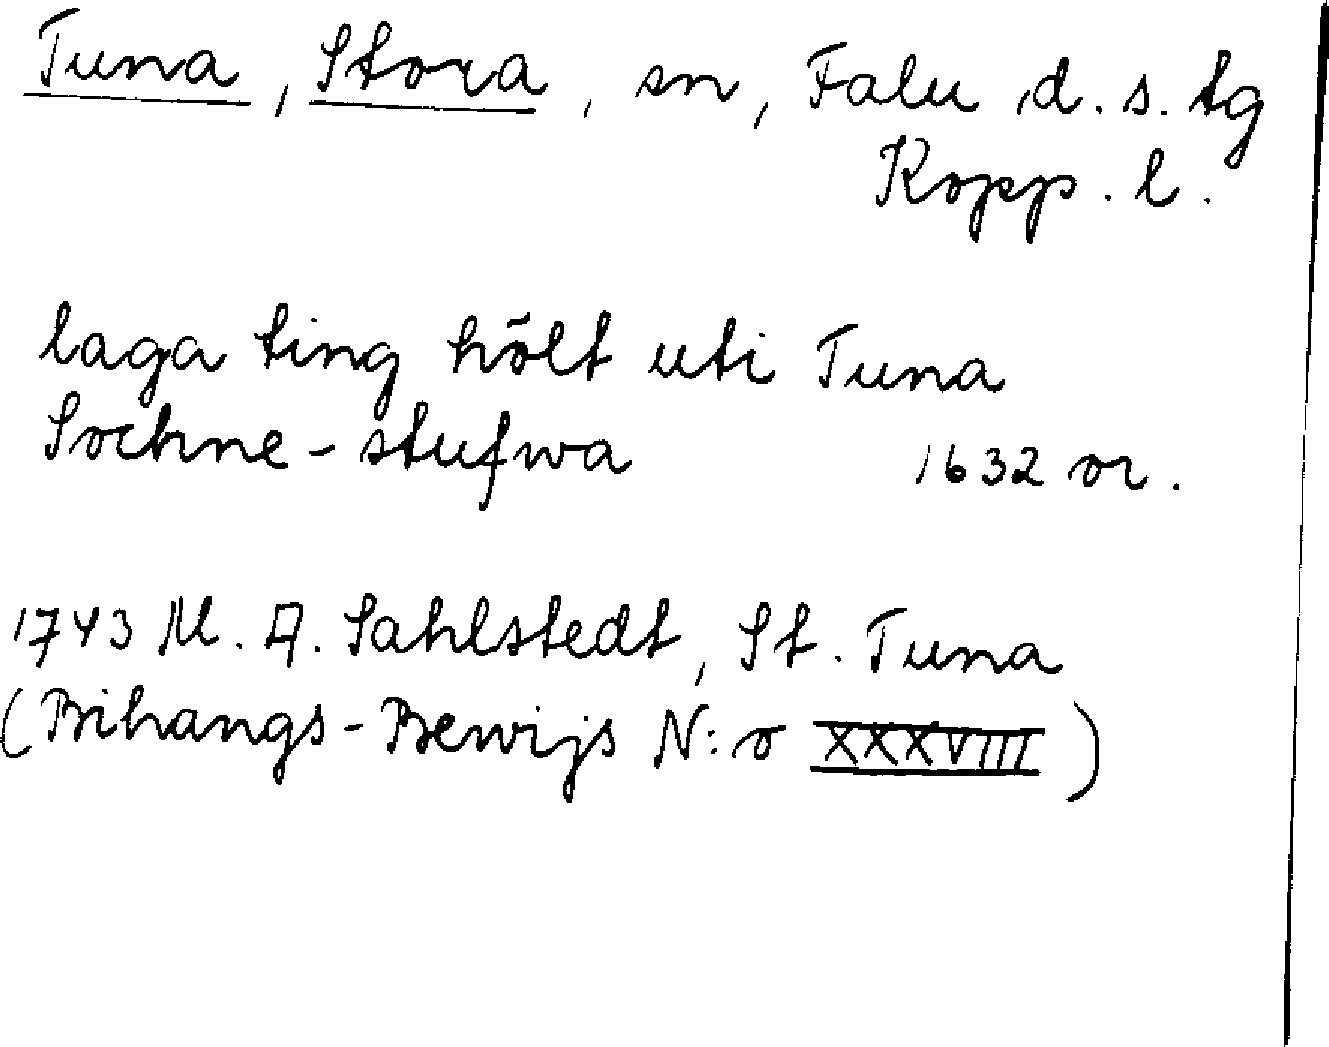 Tuna, Stora, sn, Falu d. s. tg
Kopp. l.
laga ting hölt uti Tuna
Sochne-stufwa 1632 or.
1743 M. A. Sahlstedt, St. Tuna
(Bihangs-Bewijs N:o XXXVIII)